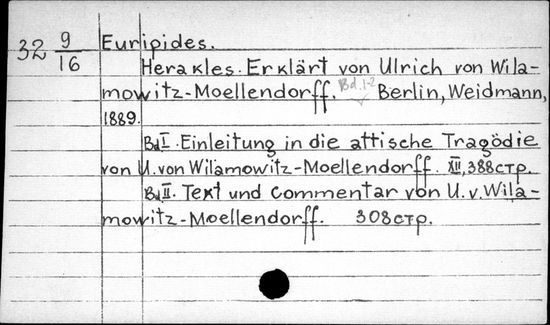 32 9/16 Euripides.
Herakles. Erklärt von Ulrich von Wila-
mowitz-Moellendorff. Bd. 1-2 Berlin, Weidmann,
1889.
Bd I. Einleitung in die attische Tragödie
von U. von Wilamowitz-Moellendorff. XII, 388 стр.
Bd II. Text und Commentar von U. v. Wila-
mowitz-Moellendorff. 308 стр.